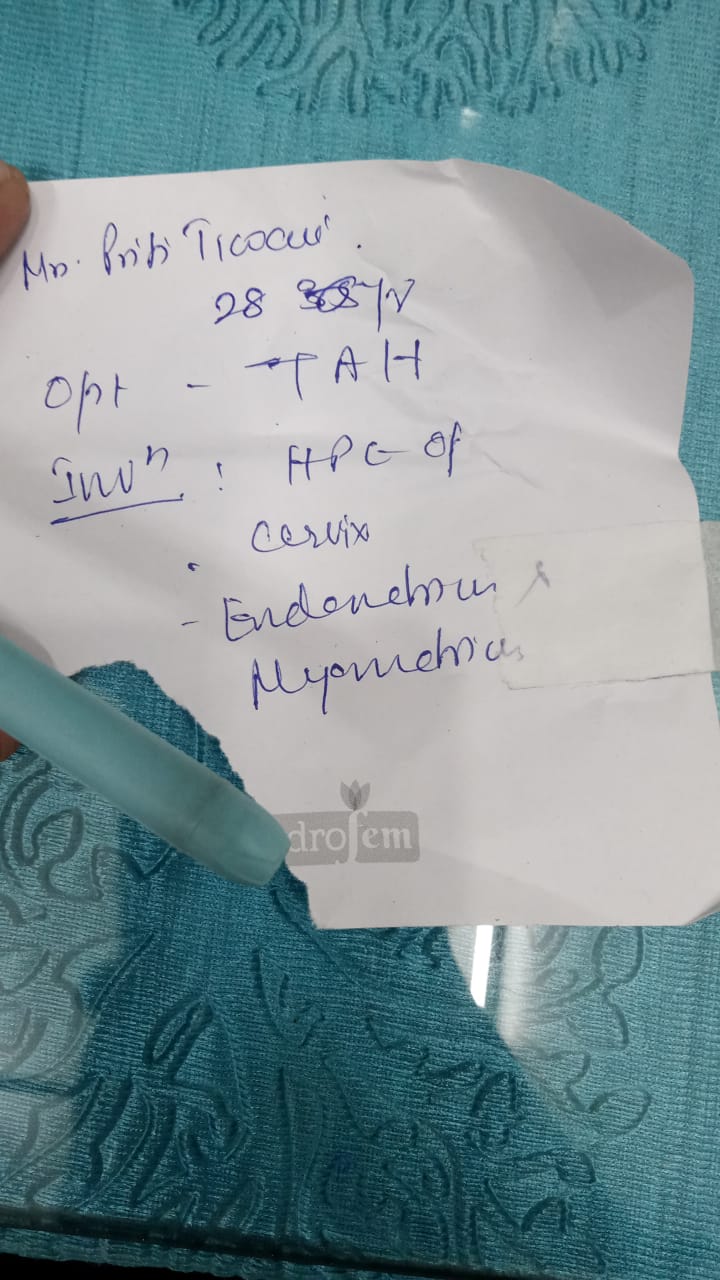 Mrs. Priti Tiwari.
28 yr
Opt - TAH
Invn : HPE of
cervix
- Endometrium &
Myometrium
drofem